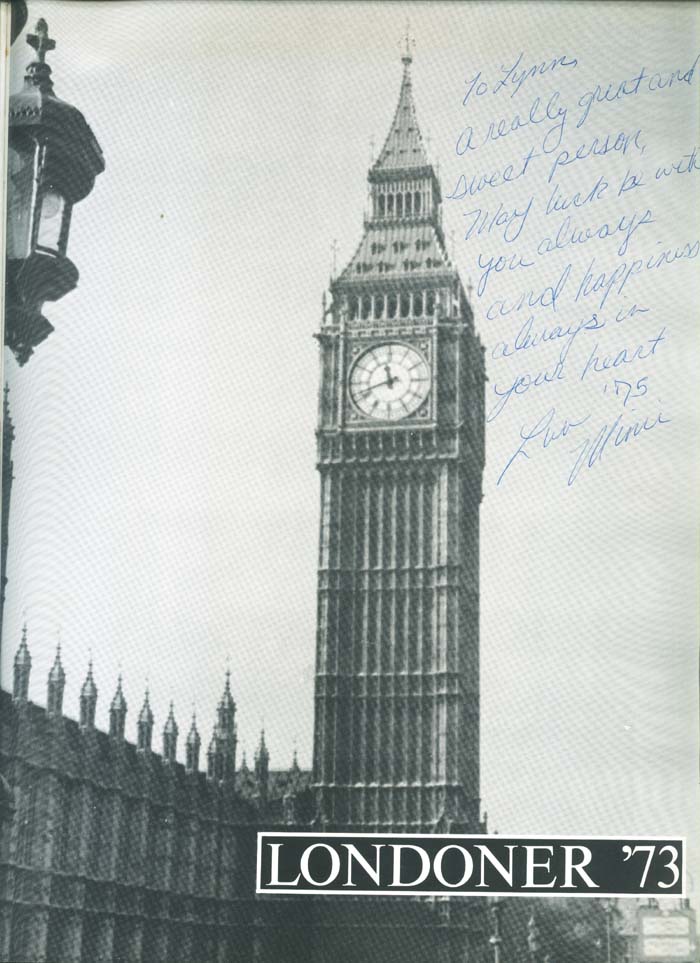 To Lynn,
A really great and
sweet person,
May luck be with
you always
and happiness
always in
your heart
'75
Luv
Mimi
LONDONER '73